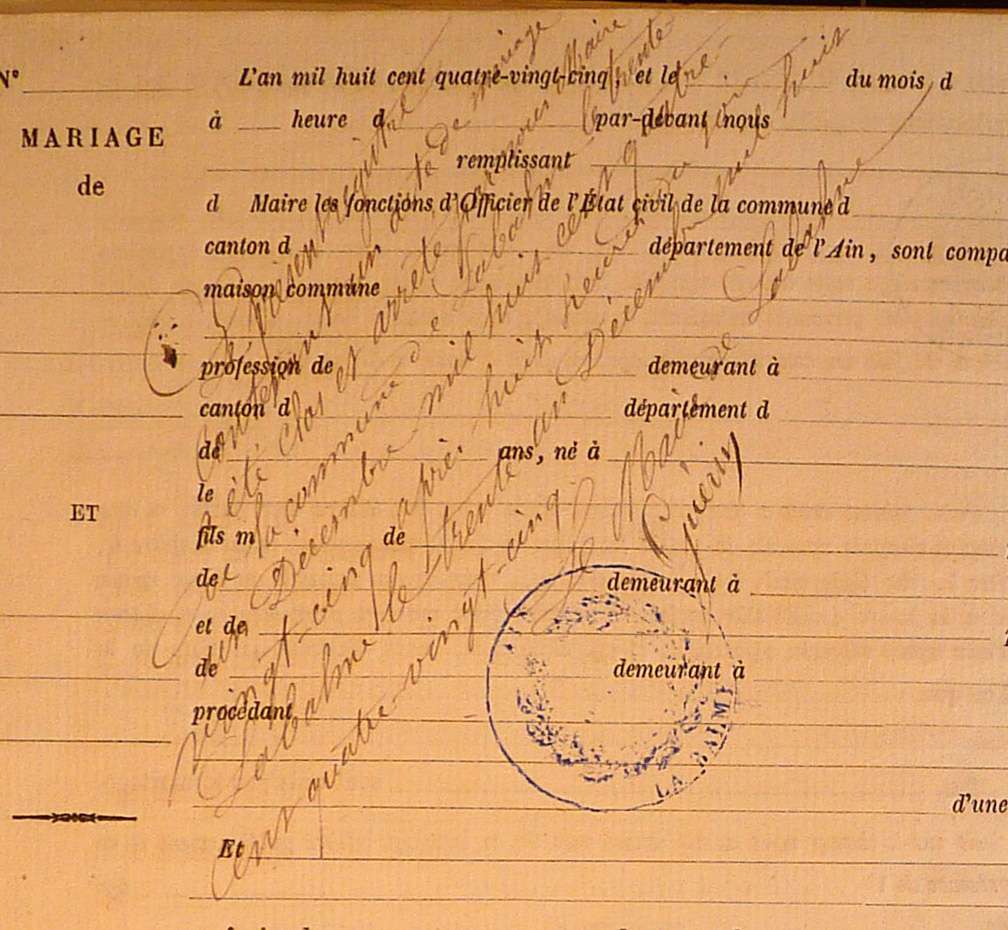 N°
L'an mil huit cent quatre-vingt-cinq, et le du mois d
à heure d par-devant nous
MARIAGE
remplissant
de
d Maire les fonctions d'Officier de l'État civil de la commune d
canton d département de l'Ain, sont compa
maison commune
profession de demeurant à
canton d département d
de ans, né à
le
ET
fils m de
de demeurant à
et de
de demeurant à
procédant
d'une
Et
Le présent registre
contenant un acte de mariage
a été clos et arrêté par nous Maire
de la commune de Labalme le trente
un Décembre mil huit cent quatre
vingt-cinq après huit heures du soir
Labalme le trente un Décembre mil huit
cent quatre-vingt-cinq
Le Maire de Labalme
Guérin
LA BALME